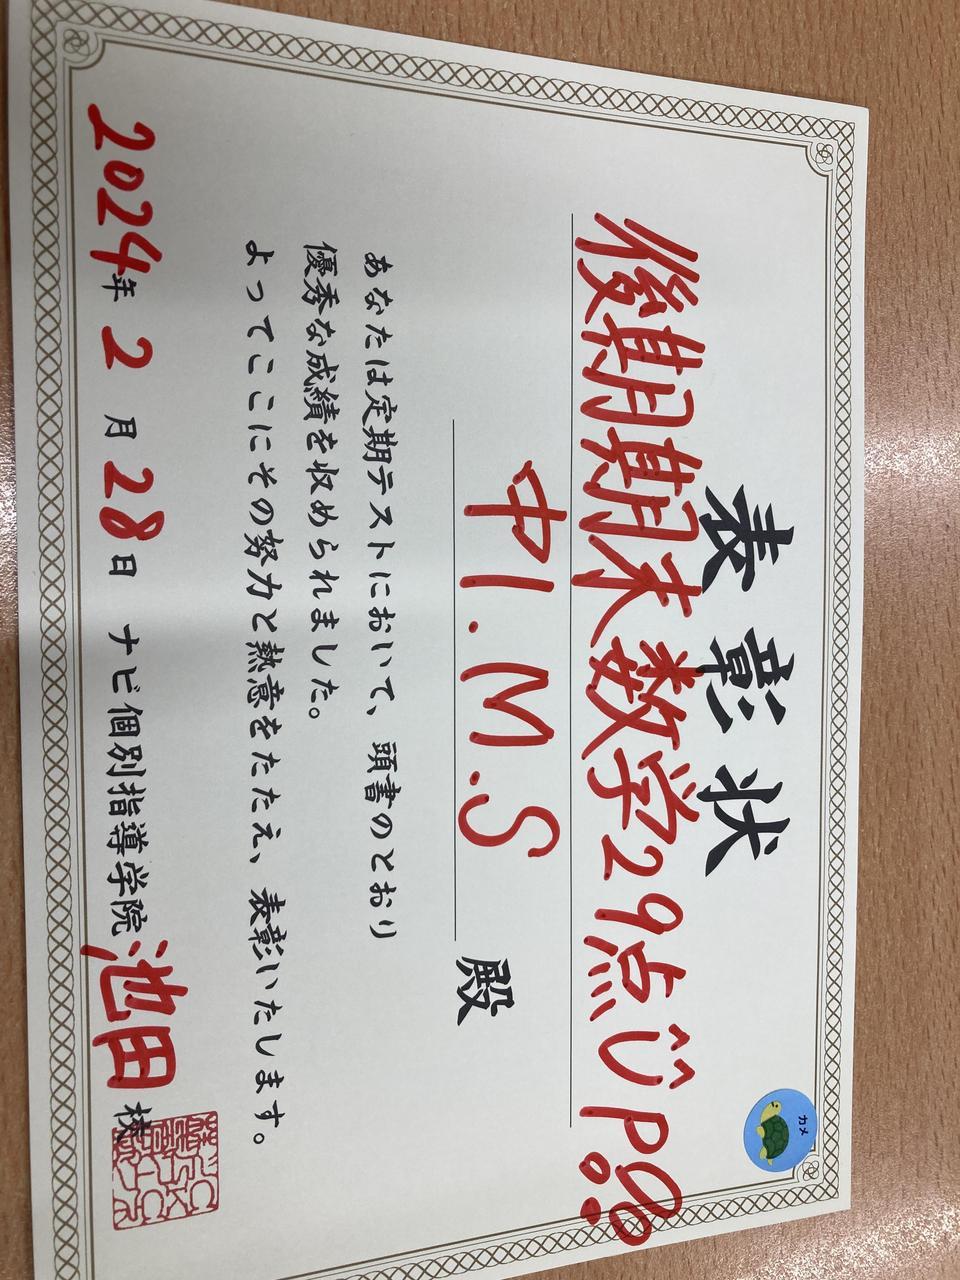 表彰状
カメ
後期期末数学29点UP!!
中1.M.S 殿
あなたは定期テストにおいて、頭書のとおり
優秀な成績を収められました。
よってここにその努力と熱意をたたえ、表彰いたします。
2024年 2月28日 ナビ個別指導学院 池田 校